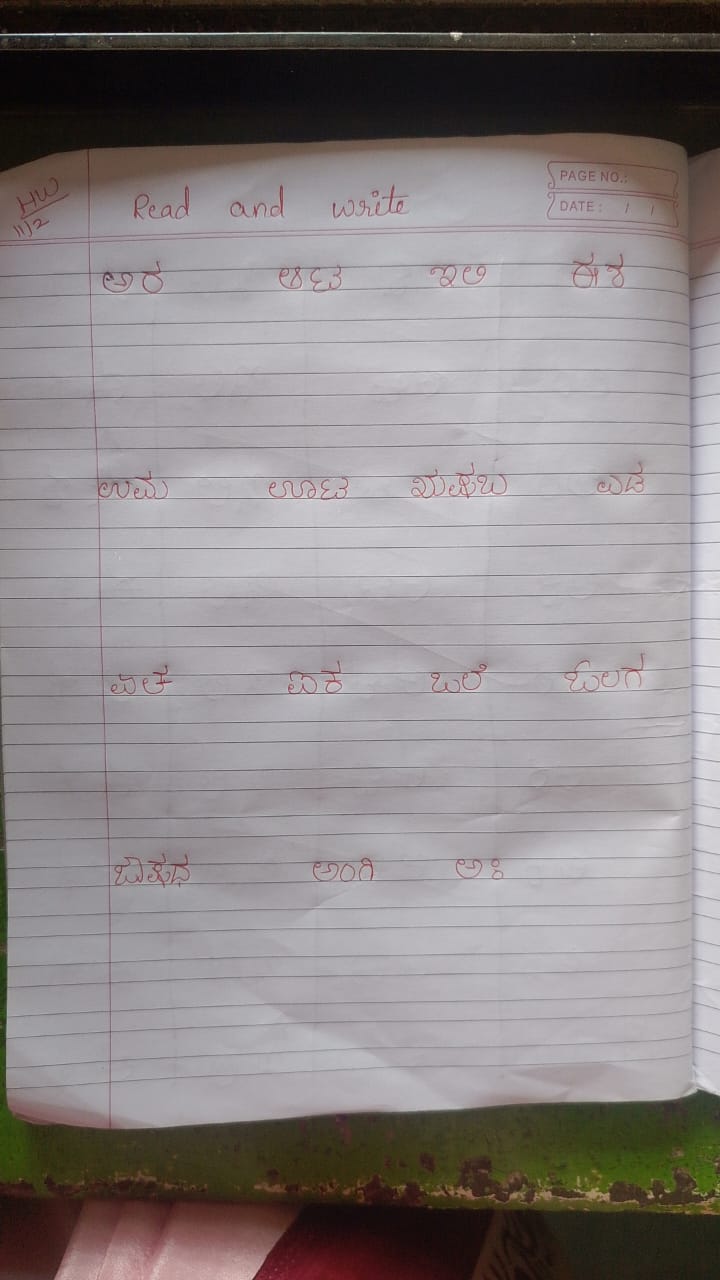 HW
11/2
Read and write
PAGE NO.:
DATE: / /
ಅರ ಆಟ ಇಲಿ ಈಶ
ಉಮ ಊಟ ಋಷಬ ಎಡ
ಏಕ ಐಕ ಒಲೆ ಓಲಗ
ಔಷಧ ಅಂಗಿ ಅಃ